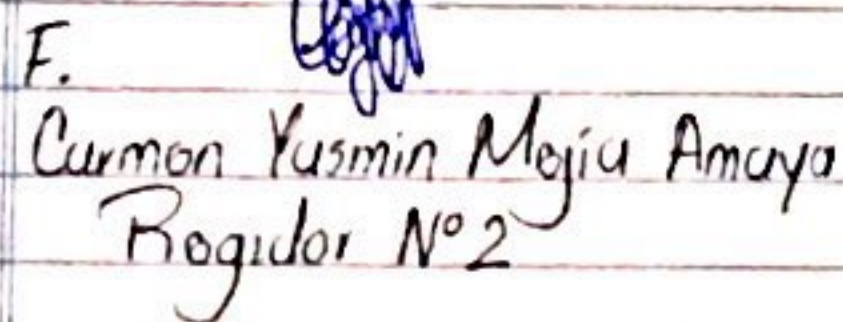 F.
Carmen Yasmin Mejia Amaya
Regidor N° 2